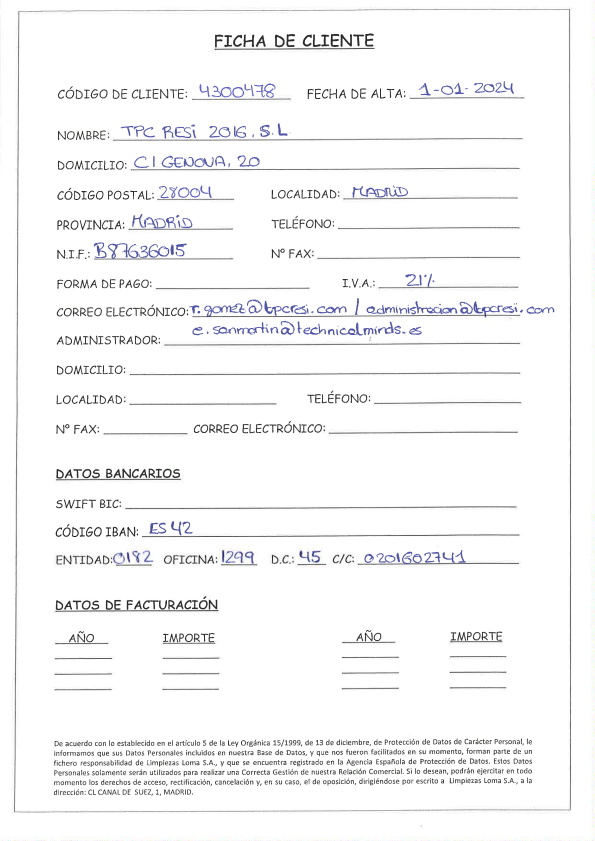 FICHA DE CLIENTE
CÓDIGO DE CLIENTE: 4300478 FECHA DE ALTA: 1-01-2024
NOMBRE: TPC RESI 2016, S.L
DOMICILIO: C/ GENOVA, 20
CÓDIGO POSTAL: 28004 LOCALIDAD: MADRID
PROVINCIA: MADRID TELÉFONO:
N.I.F.: B87636015 Nº FAX:
FORMA DE PAGO: I.V.A.: 21%
CORREO ELECTRÓNICO: r.gomez@tpcresi.com / administracion@tpcresi.com
e.sanmartin@technicalminds.es
ADMINISTRADOR:
DOMICILIO:
LOCALIDAD: TELÉFONO:
Nº FAX: CORREO ELECTRÓNICO:
DATOS BANCARIOS
SWIFT BIC:
CÓDIGO IBAN: ES 42
ENTIDAD: 0182 OFICINA: 1299 D.C.: 45 C/C: 0201602741
DATOS DE FACTURACIÓN
AÑO IMPORTE AÑO IMPORTE
De acuerdo con lo establecido en el artículo 5 de la Ley Orgánica 15/1999, de 13 de diciembre, de Protección de Datos de Carácter Personal, le
informamos que sus Datos Personales incluidos en nuestra Base de Datos, y que nos fueron facilitados en su momento, forman parte de un
fichero responsabilidad de Limpiezas Loma S.A., y que se encuentra registrado en la Agencia Española de Protección de Datos. Estos Datos
Personales solamente serán utilizados para realizar una Correcta Gestión de nuestra Relación Comercial. Si lo desean, podrán ejercitar en todo
momento los derechos de acceso, rectificación, cancelación y, en su caso, el de oposición, dirigiéndose por escrito a Limpiezas Loma S.A., a la
dirección: CL CANAL DE SUEZ, 1, MADRID.